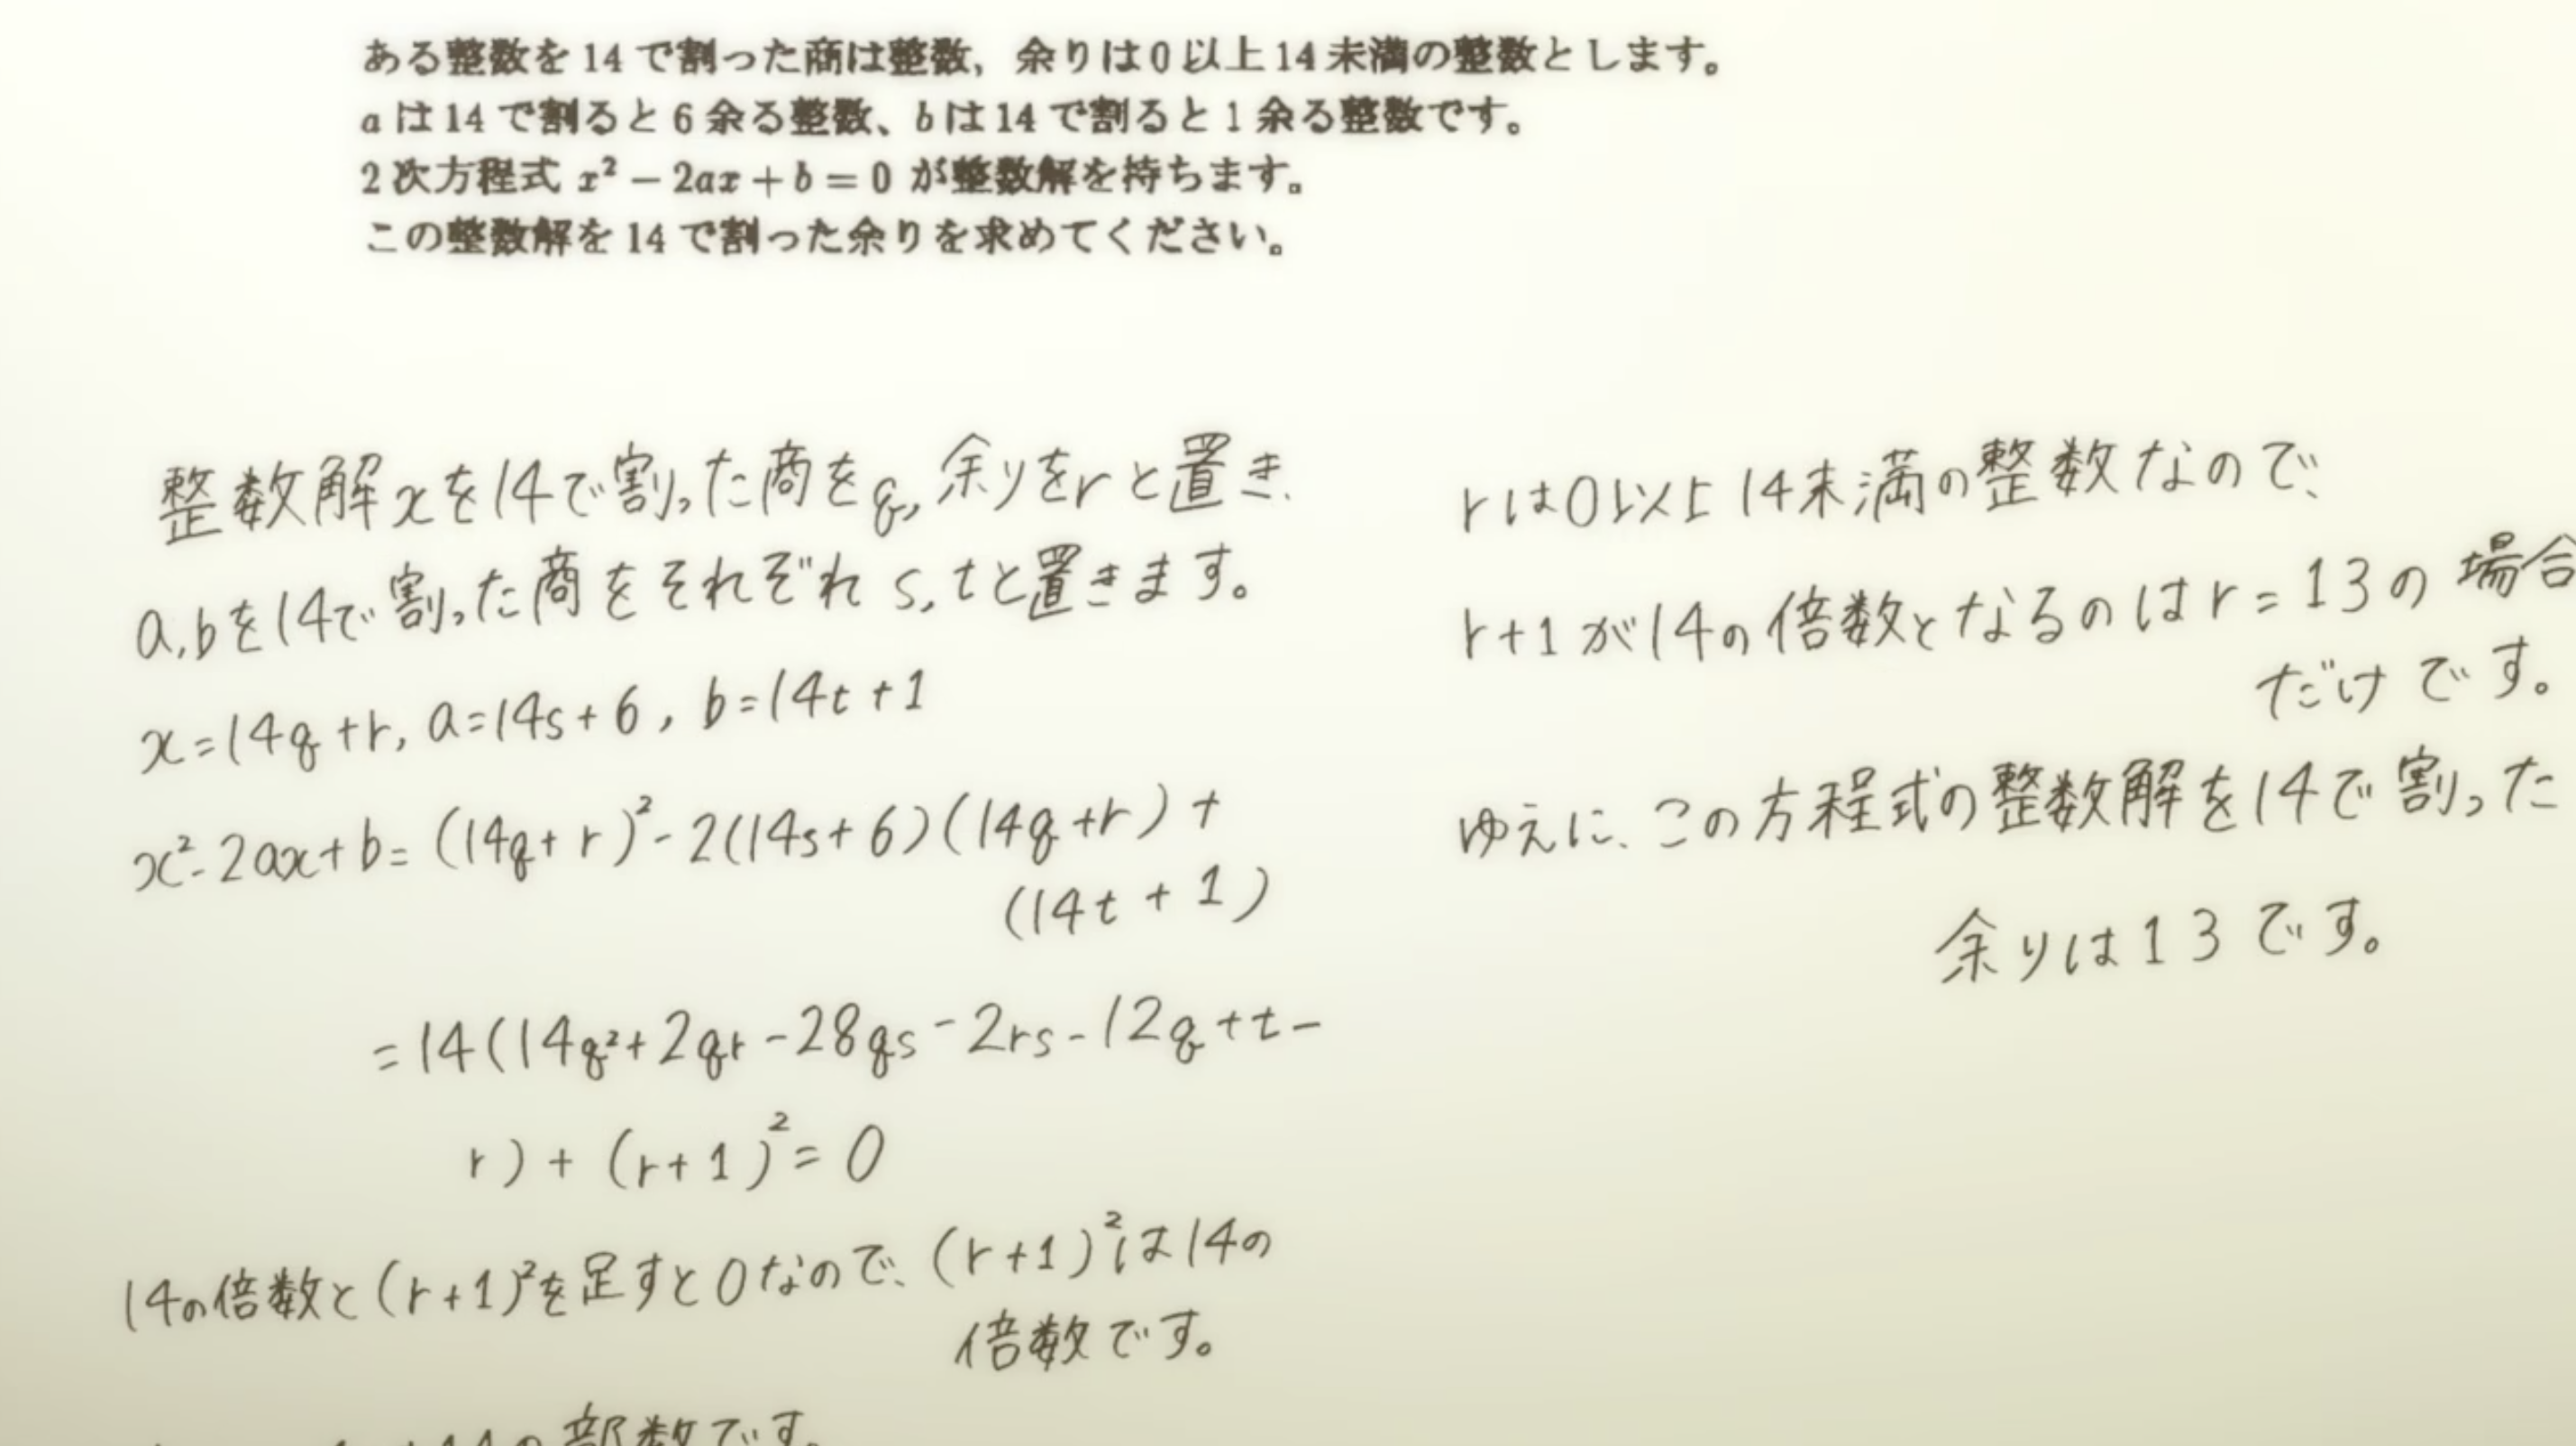 ある整数を14で割った商は整数，余りは0以上14未満の整数とします。
aは14で割ると6余る整数、bは14で割ると1余る整数です。
2次方程式 x² − 2ax + b = 0 が整数解を持ちます。
この整数解を14で割った余りを求めてください。
整数解xを14で割った商をq,余りをrと置き、
a,bを14で割った商をそれぞれs,tと置きます。
x=14q+r, a=14s+6, b=14t+1
x²-2ax+b=(14q+r)²-2(14s+6)(14q+r)+
(14t+1)
=14(14q²+2qr-28qs-2rs-12q+t-
r)+(r+1)²=0
14の倍数と(r+1)²を足すと0なので、(r+1)²は14の
倍数です。
14の部数です。
rは0以上14未満の整数なので、
r+1が14の倍数となるのはr=13の場合
だけです。
ゆえに、この方程式の整数解を14で割った
余りは13です。